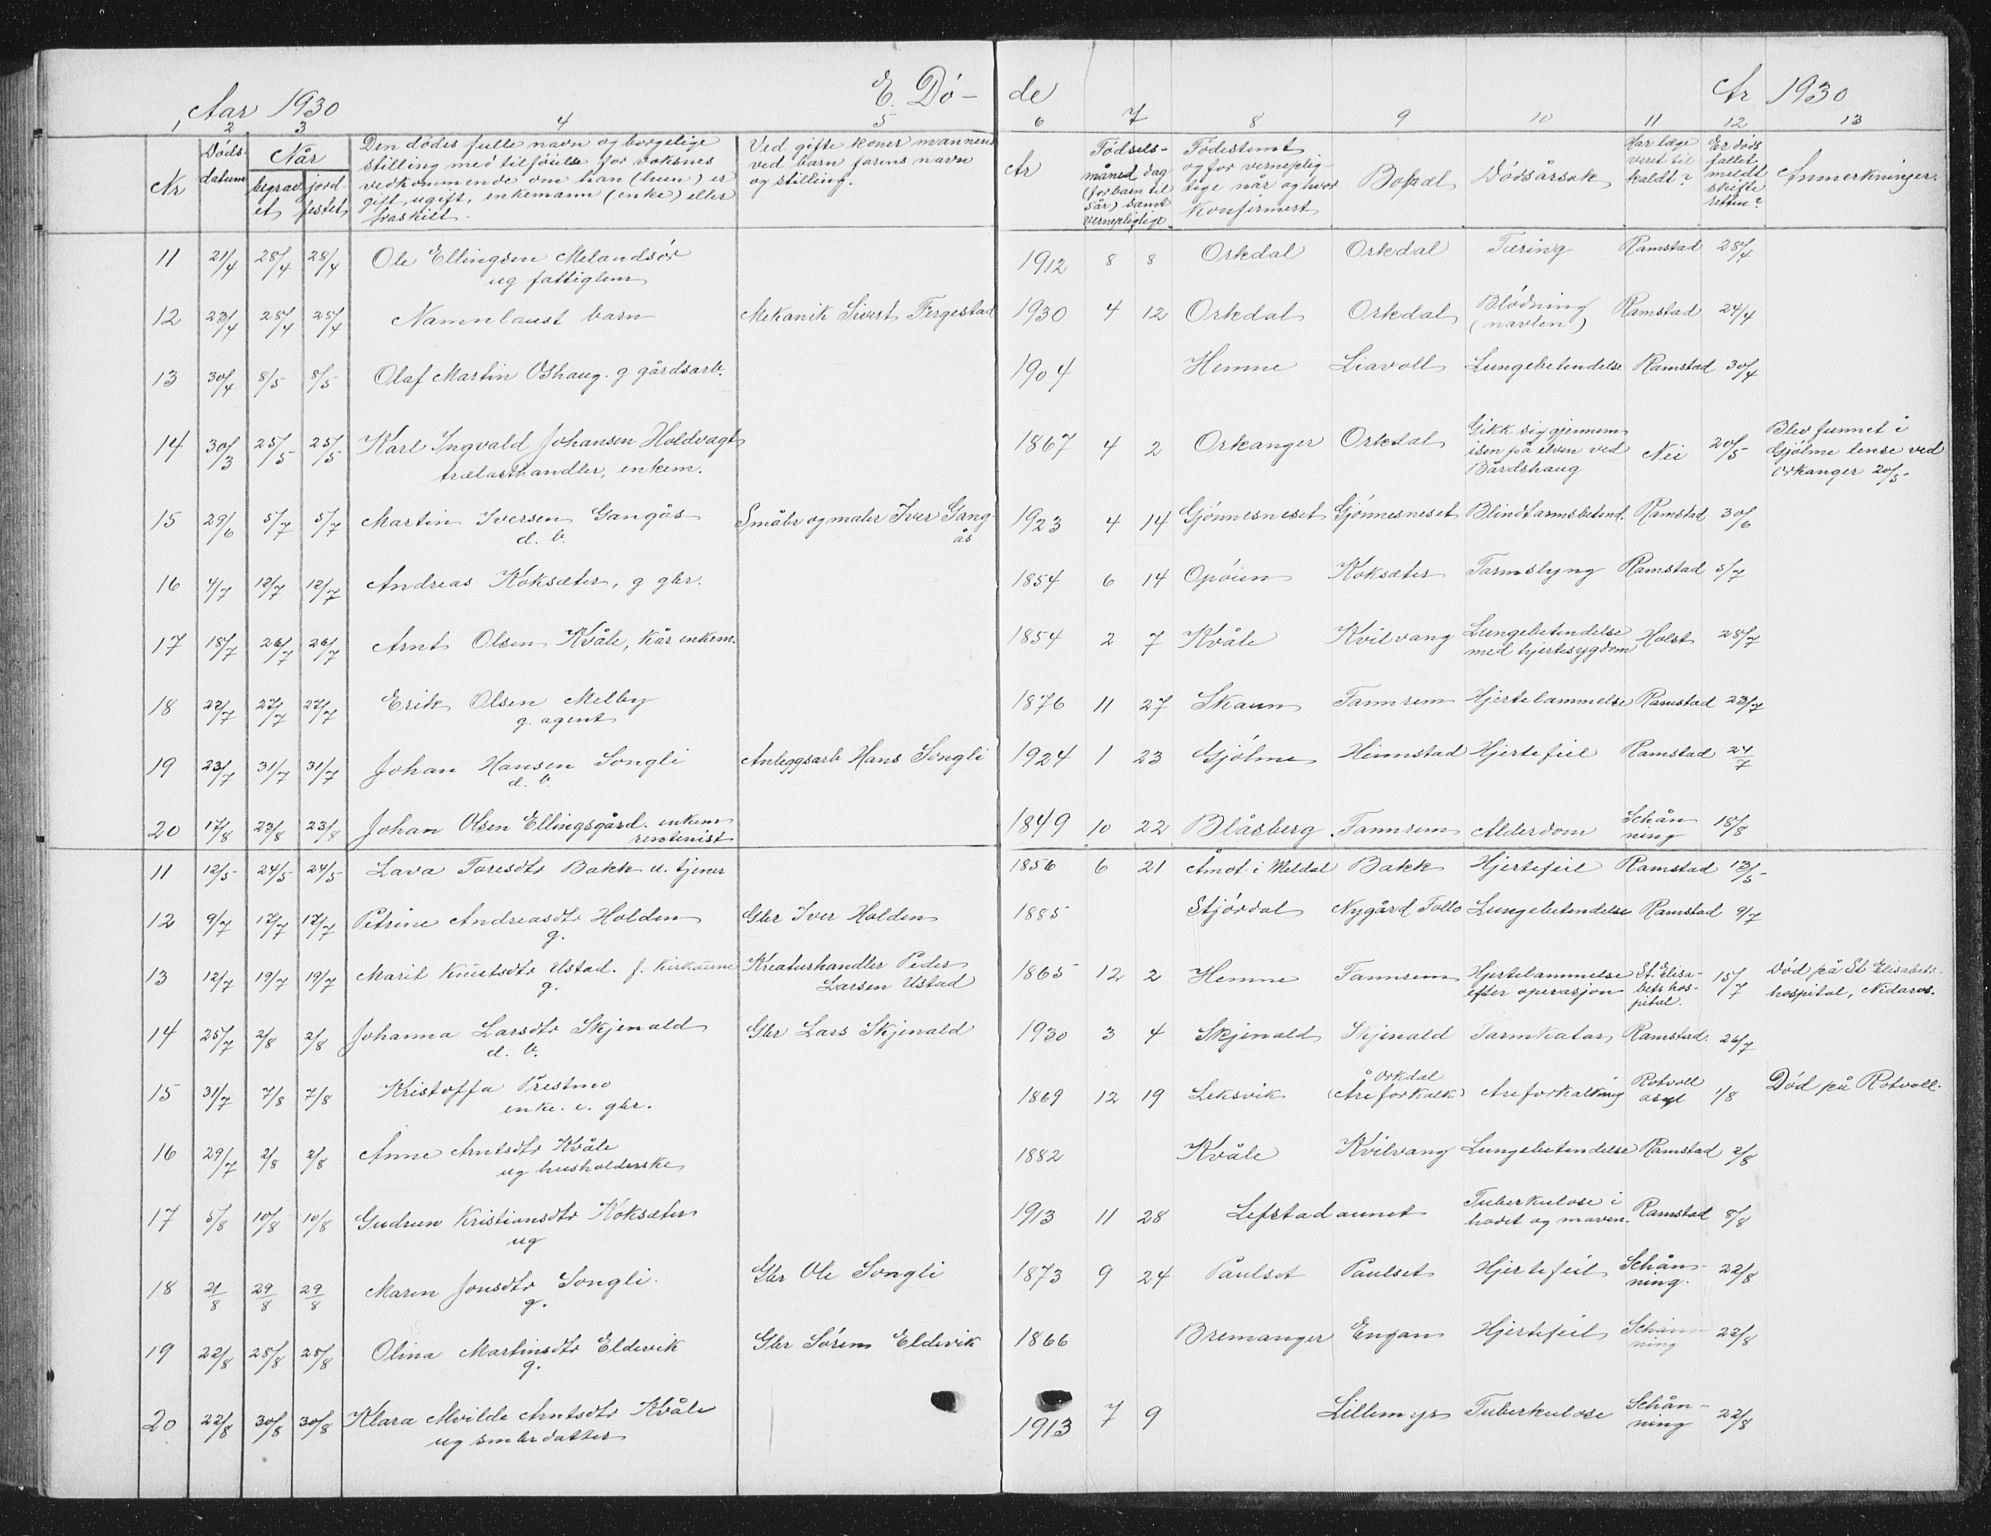 Aar 1930 E. Dö- de Ar 1930
1 2 3 4 5 6 7 8 9 10 11 12 13
Nr Döds-datum Når begrav et jord festet Den dödes fulle navn og borgelige stilling med tilföielse for voksnes vedkommende om han (hun) er gift, ugift, enkemann (enke) eller fraskilt. Ved gifte koner mannens ved barn farens navn og stilling. Ar Födsels-måned dag (for barn til 5 år) samt vernepligtige. Födestemt og for verneplig-tige når og hvor Konfirmert Bopæl Dödsårsak Har læge veret til kaldt? Er döds fallet meldt skifte retten? Anmerkninger.
11 21/4 28/4 28/4 Ole Ellingsen Melandsör ug fattiglem 1912 8 8 Orkdal Orkdal Tæring Ramstad 28/4
12 23/4 25/4 25/4 Namnlaust barn Mekanik Sivert Fergestad 1930 4 12 Orkdal Orkdal Blödning (navlen) Ramstad 24/4
13 30/4 8/5 8/5 Olaf Martin Oshaug. g gårdsarb. 1904 Hemne Liavoll Lungebetendelse Ramstad 30/4
14 30/3 25/5 25/5 Karl Ingvald Johansen Holdvagt trælasthandler, enkem. 1867 4 2 Orkanger Orkdal Gikk sig gjennem isen på elven ved Bårdshaug Nei 20/5 Blev funnet i Gjölme lense ved Orkanger 20/5
15 29/6 5/7 5/7 Martin Iversen Gangås d. b. Småbr og maler Iver Gang-ås 1923 4 14 Gjönnesneset Gjönnesneset Blindtarmsbetend. Ramstad 30/6
16 4/7 12/7 12/7 Andreas Koksæter, g gbr. 1854 6 14 Opöien Koksæter Tarmslyng Ramstad 5/7
17 18/7 26/7 26/7 Arnt Olsen Kvåle, kår enkem. 1854 2 7 Kvåle Kvilvang Lungebetendelse med hjertesygdom Holst 28/7
18 22/7 27/7 27/7 Erik Olsen Melby g. agent 1876 11 27 Skaun Tannrem Hjertelammelse Ramstad 23/7
19 23/7 31/7 31/7 Johan Hansen Songli d. b. Anleggsarb Hans Songli 1924 1 23 Gjölme Heimstad Hjertefeil Ramstad 24/7
20 17/8 23/8 23/8 Johan Olsen Ellingsgård. enkem rentenist 1849 10 22 Blåsberg Tannrem Alderdom Schån ning 18/8
11 12/5 24/5 24/5 Lava Toresdtr Bakk u. tjener 1856 6 21 Åmot i Meldal Bakk Hjertefeil Ramstad 13/5
12 9/7 17/7 17/7 Petrine Andreasdtr Holden g. Gbr Iver Holden 1885 Stjördal Nygård Follo Lungebetendelse Ramstad 9/7
13 12/7 19/7 19/7 Marit Knutsdtr Ustad. f. Kirkaune g. Kreaturhandler Peder Larsen Ustad 1865 12 2 Hemne Tannrem Hjertelammelse efter operasjon St. Elisa-bets hos-pital. 15/7 Död på St Elisabets-hospital, Nidaros.
14 25/7 2/8 2/8 Johanna Larsdtr Skjenald d. b. Gbr Lars Skjenald 1930 3 4 Skjenald Skjenald Tarmkatar Ramstad. 26/7
15 31/7 7/8 7/8 Kristoffa Prestmo enke. e. gbr. 1869 12 19 Leksvik Orkdal (Åreforkalk) Areforkalkning Rotvoll asyl 1/8 Död på Rotvoll.
16 29/7 2/8 2/8 Anne Arntsdtr Kvåle ug husholderske 1882 Kvåle Kvilvang Lungebetendelse Ramstad 2/8
17 5/8 10/8 10/8 Gudrun Kristiansdtr Koksæter ug 1913 11 28 Lefstadaunet Tuberkulose i hodet og maven. Ramstad 8/8
18 21/8 29/8 29/8 Maren Jonsdtr Songli. g. Gbr Ole Songli 1873 9 24 Paulset Paulset Hjertefeil Schån-ning. 22/8
19 22/8 28/8 28/8 Olina Martinsdtr Eldevik g. Gbr Sören Eldevik 1866 Bremanger Engan Hjertefeil Schån-ning 23/8
20 22/8 30/8 30/8 Klara Alvilde Arntsdtr Kvåle ug småbrdatter 1913 7 9 Lillemyr Tuberkulose Schån-ning 22/8